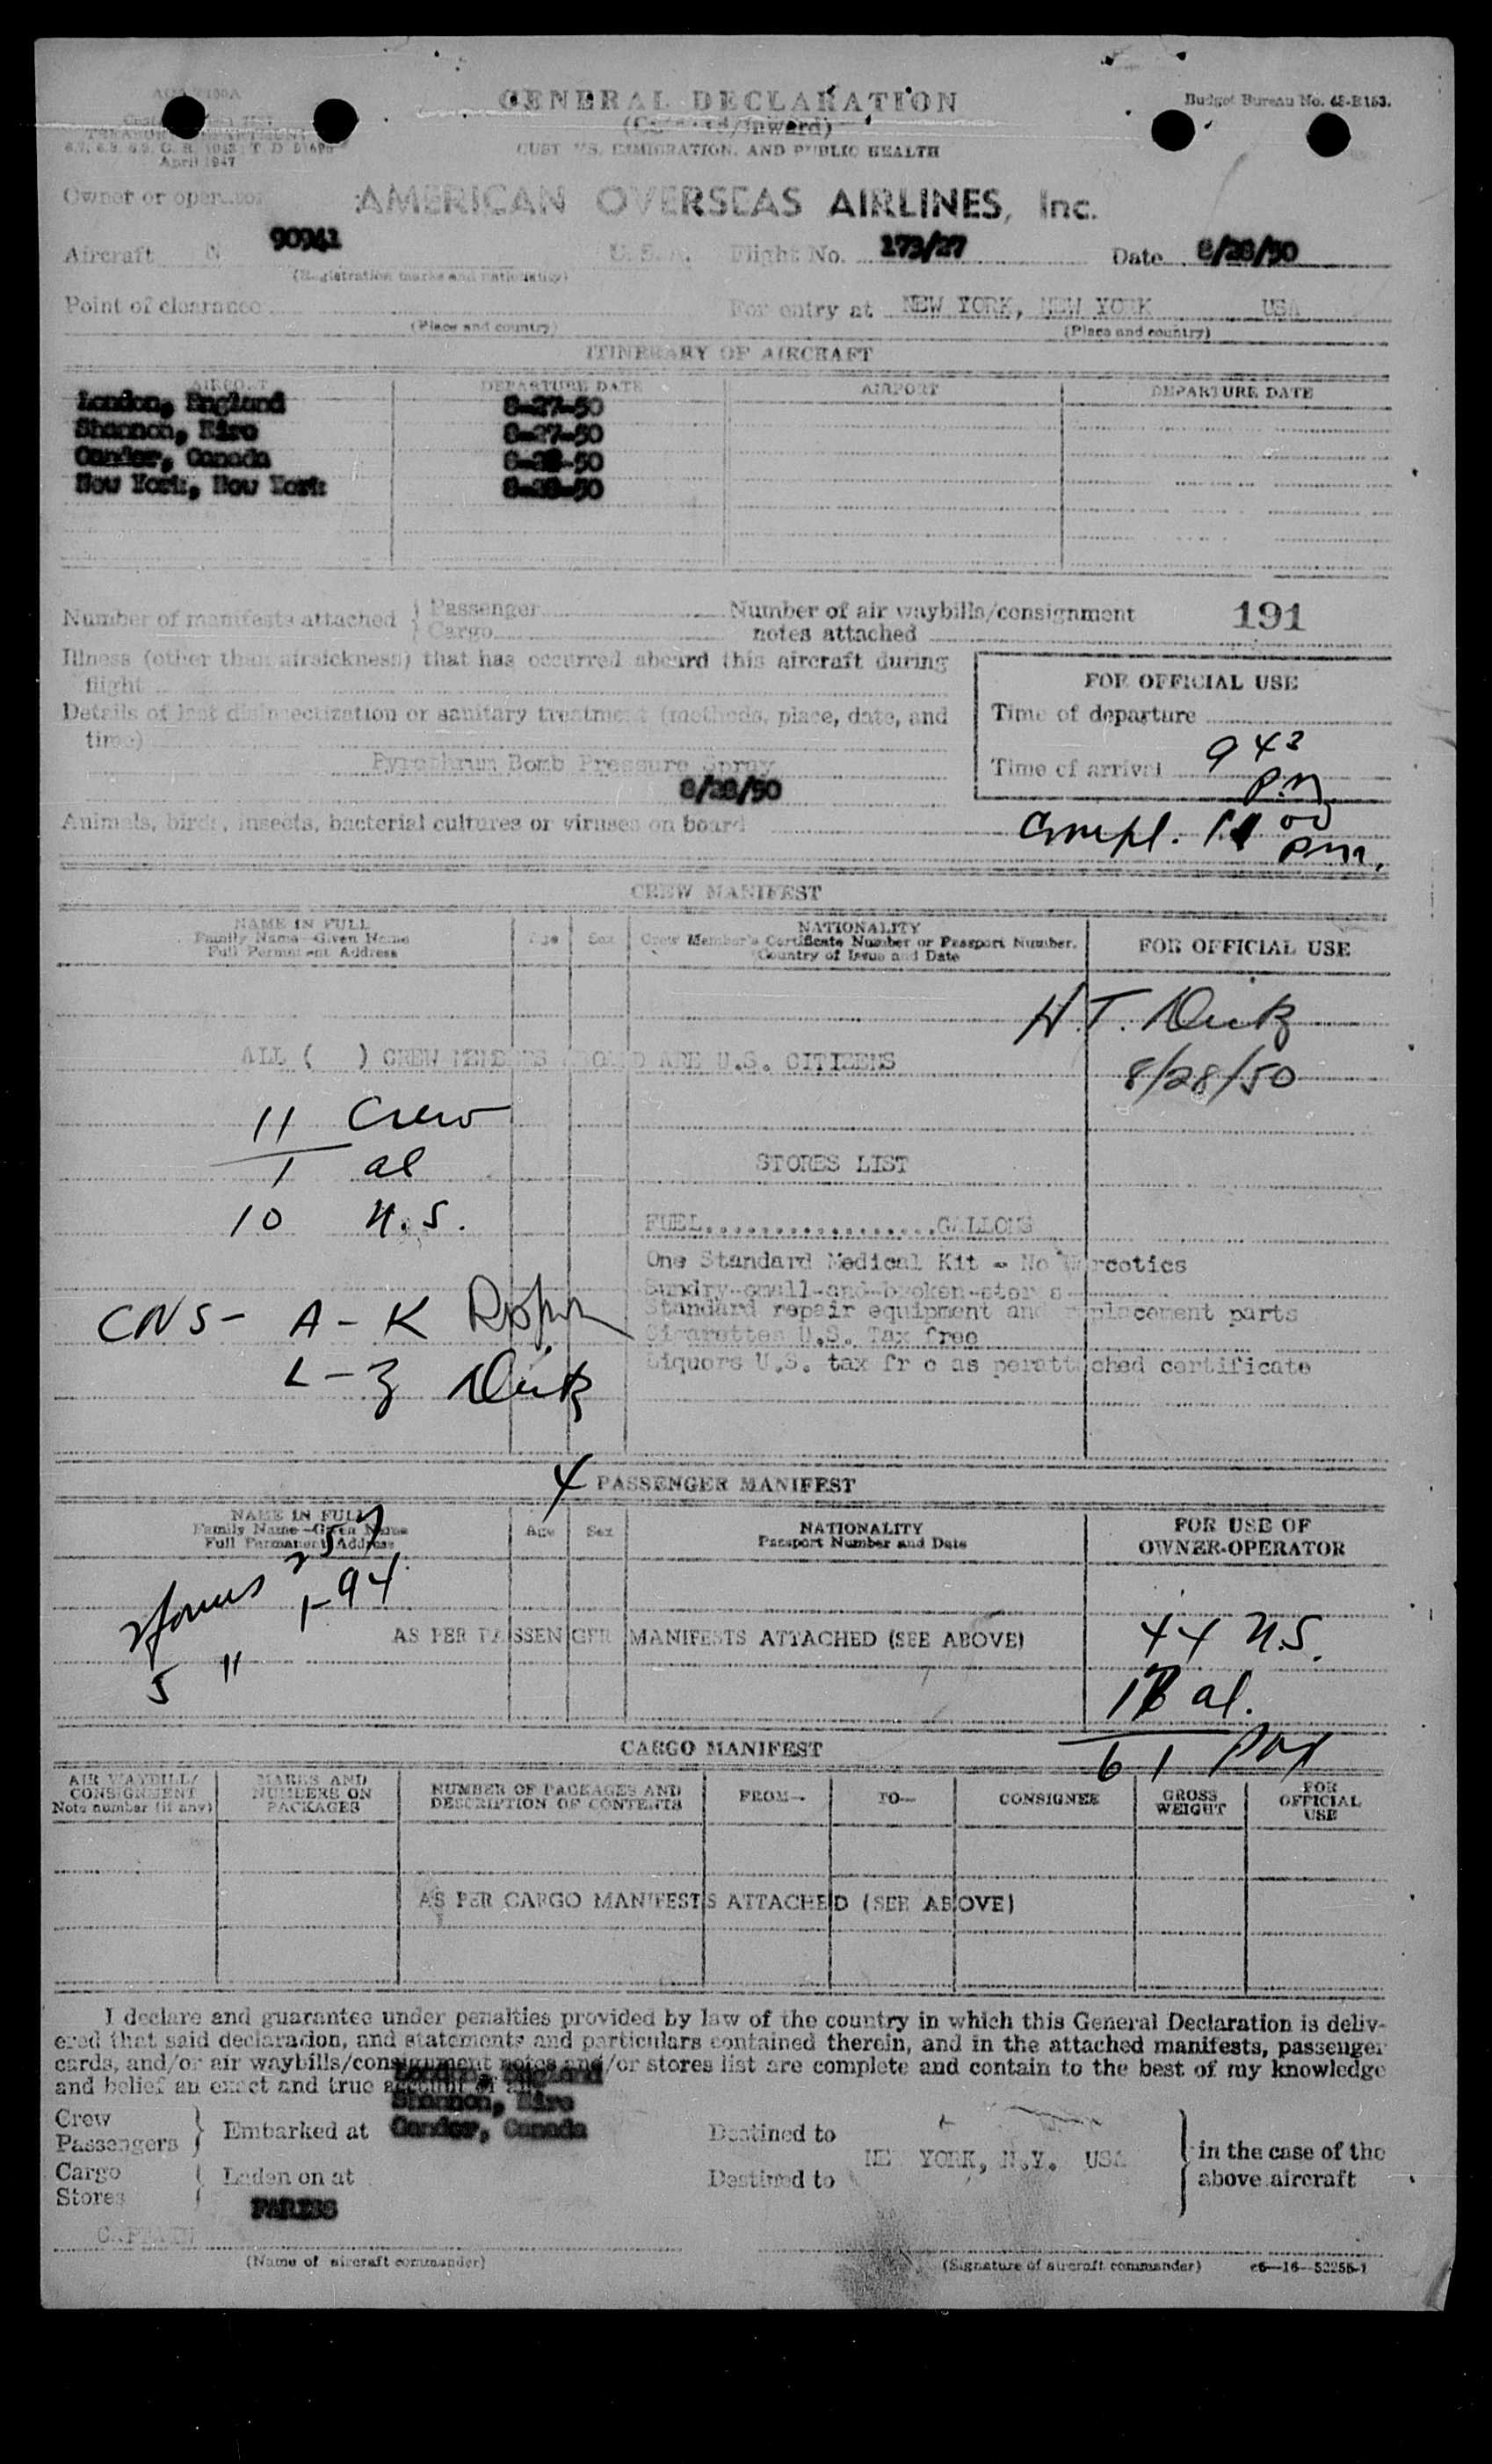 GENERAL DECLARATION
Budget Bureau No. 48-R153.
(Outward/Inward)
CUSTOMS, IMMIGRATION, AND PUBLIC HEALTH
TREASURY DEPARTMENT
April 1947
Owner or operator AMERICAN OVERSEAS AIRLINES, Inc.
Aircraft N 90941 U.S.A. Flight No. 173/27 Date 8/28/50
(Registration marks and nationality)
Point of clearance For entry at NEW YORK, NEW YORK USA
(Place and country) (Place and country)
ITINERARY OF AIRCRAFT
AIRPORT DEPARTURE DATE AIRPORT DEPARTURE DATE
London, England 8-27-50
Shannon, Eire 8-27-50
Gander, Canada 8-28-50
New York, New York 8-28-50
Number of manifests attached { Passenger
Cargo
Number of air waybills/consignment
notes attached
191
Illness (other than airsickness) that has occurred aboard this aircraft during
flight
Details of last disinsectization or sanitary treatment (methods, place, date, and
time)
Pyrethrum Bomb Pressure Spray
8/28/50
FOR OFFICIAL USE
Time of departure
Time of arrival 9 43
P.M
Animals, birds, insects, bacterial cultures or viruses on board
Compl. 11 00
P.M.
CREW MANIFEST
NAME IN FULL
Family Name—Given Name
Full Permanent Address
Age Sex
NATIONALITY
Crew Member's Certificate Number or Passport Number.
Country of Issue and Date
FOR OFFICIAL USE
H.T.
ALL ( ) CREW MEMBERS ABOARD ARE U.S. CITIZENS
8/28/50
11 Crew
1 al
10 U.S.
STORES LIST
FUEL..................GALLONS
One Standard Medical Kit - No Narcotics
Sundry-small-and-broken-stores
Standard repair equipment and replacement parts
Cigarettes U.S. Tax free
Liquors U.S. tax free as per attached certificate
CNS- A - K
L - Z
4
PASSENGER MANIFEST
NAME IN FULL
Family Name—Given Name
Full Permanent Address
Age Sex
NATIONALITY
Passport Number and Date
FOR USE OF
OWNER-OPERATOR
257
I-94
5 "
AS PER PASSENGER MANIFESTS ATTACHED (SEE ABOVE)
44 U.S.
17 al.
61 pax
CARGO MANIFEST
AIR WAYBILL/
CONSIGNMENT
Note number (if any)
MARKS AND
NUMBERS ON
PACKAGES
NUMBER OF PACKAGES AND
DESCRIPTION OF CONTENTS
FROM—
TO—
CONSIGNEE
GROSS
WEIGHT
FOR
OFFICIAL
USE
AS PER CARGO MANIFESTS ATTACHED (SEE ABOVE)
I declare and guarantee under penalties provided by law of the country in which this General Declaration is deliv-
ered that said declaration, and statements and particulars contained therein, and in the attached manifests, passenger
cards, and/or air waybills/consignment notes and/or stores list are complete and contain to the best of my knowledge
and belief an exact and true account of all
London, England
Shannon, Eire
Gander, Canada
Crew
Passengers } Embarked at
Destined to
Cargo
Stores { Laden on at
Destined to
NEW YORK, N.Y. USA
in the case of the
above aircraft
CAPTAIN
(Name of aircraft commander) (Signature of aircraft commander) c6—16—52255-1